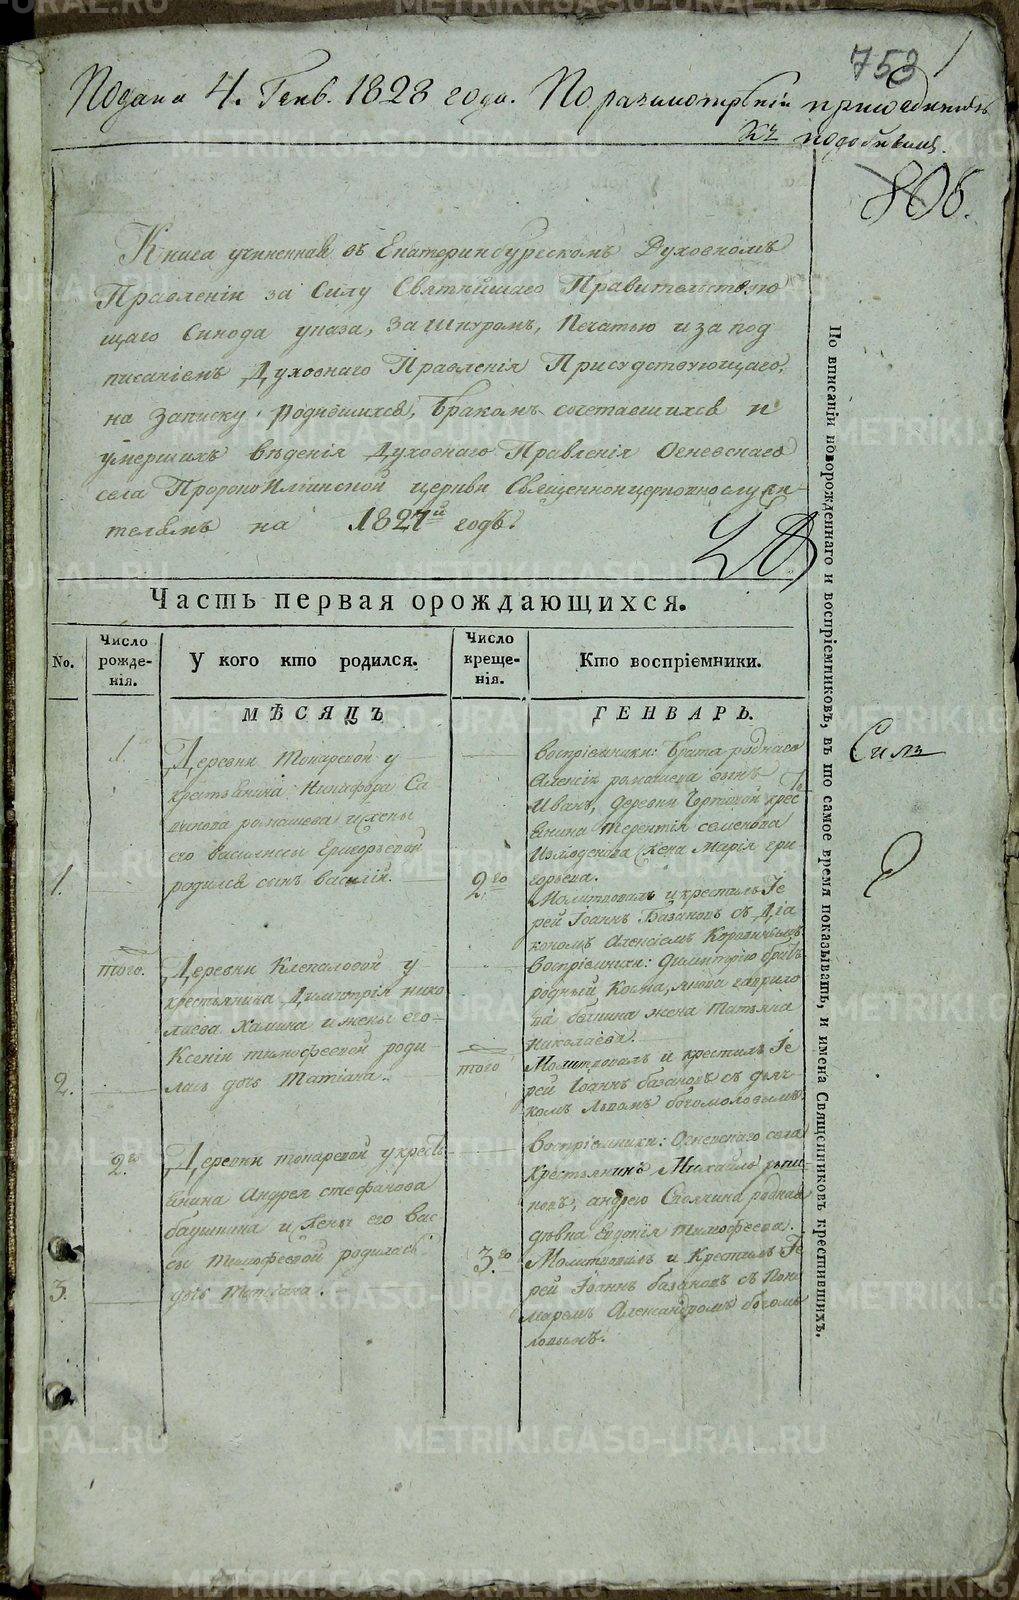 753
Подана 4. Генв. 1828 года. По разсмотрѣніи приобщить
къ подобнымъ.
806.
Книга учиненная въ Екатеринбургскомъ Духовномъ
Правленіи за Силу Святѣйшаго Правительствую
щаго Синода указа, за шнуромъ, Печатью и за под
писаніемъ Духовнаго Правленія Присудствующаго,
на Записку Родившихся, Бракомъ сочетавшихся и
умершихъ вѣденія Духовнаго Правленія Огневскаго
села ПророкоИліинской церкви Священноцерковнослужи-
телямъ на 1827й годъ.
Часть первая орождающихся.
No.
Число рожде-нія.
У кого кто родился.
Число креще-нія.
Кто воспріемники.
МѢСЯЦЪ
ГЕНВАРЬ.
1.
1.
Деревни Токаревой у
крестьянина Никифора Са
ромашева и жены
его Василисы Григорьевой
родился сынъ Василій.
2го
Воспріемники: Брата роднаго
Алексѣя ромашева сынъ
Иванъ, деревни крес
янина Терентія семенова
жена Марія гри
горьева.
Молитвовалъ и крестилъ Іе
рей Іоаннъ Базановъ съ Діа
кономъ Алексіемъ
2.
того.
Деревни Клепаловой у
крестьянина Димитрія нико
лаева Хамина и жены его
Ксеніи тимофеевой роди
лась дочь Татіана.
того
Воспріемники: Димитрію братъ
родный Косма, гаврило
ва жена Татьяна
Николаева.
Молитвовалъ и крестилъ Іе
рей Іоаннъ базановъ съ дьяч
комъ Львомъ богомоловымъ.
3.
2го
Деревни токаревой у крест
янина Андрея стефанова
баушкина и жены его Вас
сы Тимофеевой родилась
дочь Татіана.
3го
Воспріемники: Огневскаго села
Крестьянинъ Михайлъ
андрею родная
Евдокія тимофеева.
Молитвовалъ и Крестилъ Іе
рей Іоаннъ базановъ съ Поно
маремъ Александромъ богомо
ловымъ.
По вписаніи новорожденнаго и воспріемниковъ, въ то самое время показывать, и имена Священниковъ крестившихъ.
Силѣ